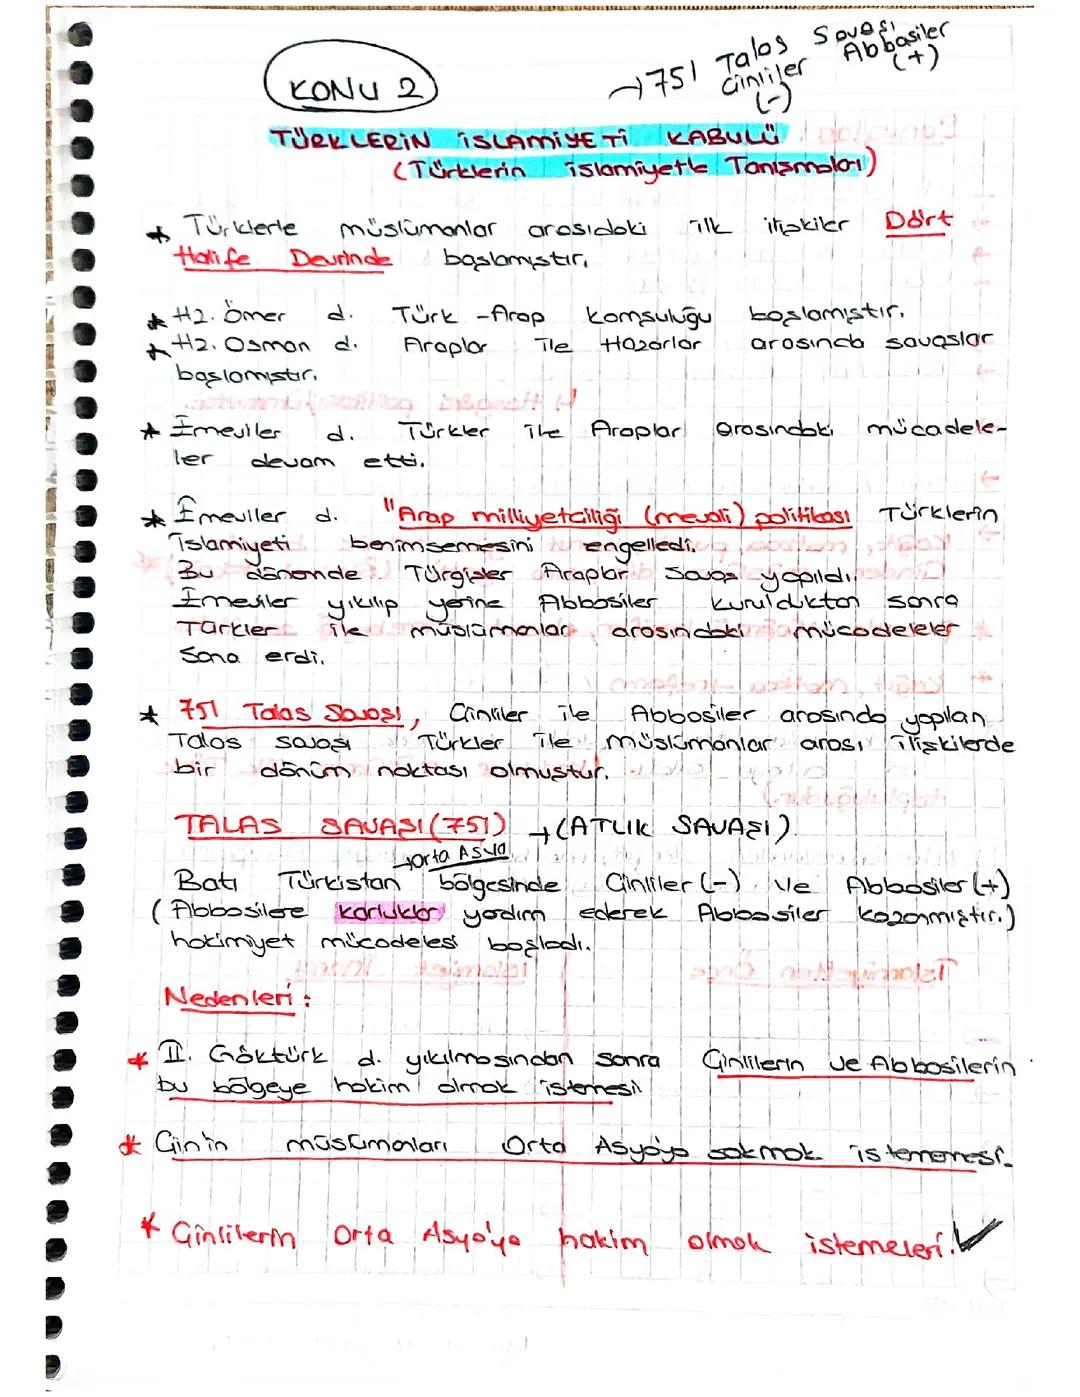 KONU 2
→751 Talas Savaşı
Çinliler Abbasiler
(-) (+)
TÜRKLERİN İSLAMİYETİ KABULÜ
(Türklerin islamiyetle Tanışmaları)
* Türklerle müslümanlar arasıdaki ilk ilişkiler Dört
Halife Devrinde başlamıştır.
* Hz. Ömer d. Türk-Arap komşuluğu başlamıştır.
* Hz. Osman d. Araplar ile Hazarlar arasında savaşlar
başlamıştır.
* Emeviler d. Türkler ile Araplar arasındaki mücadele-
ler devam etti.
* Emeviler d. "Arap milliyetçiliği (mevali) politikası Türklerin
islamiyeti benimsemesini engelledi.
Bu dönemde Türgişler Araplar Savaş yapıldı.
Emeviler yıkılıp yerine Abbasiler kurulduktan sonra
Türkler ile müslümanlar arasındaki mücadeleler
Sona erdi.
* 751 Talas Savaşı, Çinliler ile Abbasiler arasında yapılan
Talas savaşı Türkler ile müslümanlar arası ilişkilerde
bir dönüm noktası olmuştur.
TALAS SAVAŞI (751) → (ATLIK SAVAŞI)
→Orta Asya
Batı Türkistan bölgesinde Çinliler (-) ve Abbasiler (+)
(Abbasilere Karluklar yardım ederek Abbasiler kazanmıştır.)
hakimiyet mücadelesi başladı.
Nedenleri:
* II. Göktürk d. yıkılmasından sonra Çinlilerin ve Abbasilerin
bu bölgeye hakim olmak istemesi
* Çin'in müslümanları Orta Asya'ya sokmak istememesi.
* Çinlilerin Orta Asya'ya hakim olmak istemeleri.